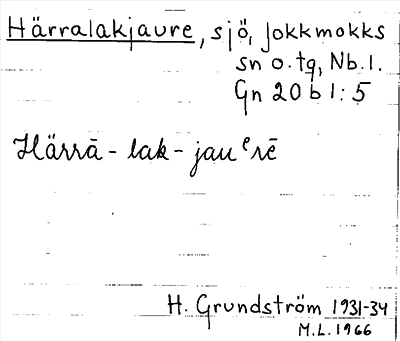 Härralakjaure, sjö, Jokkmokks
sn o. tg, Nb. l.
Gn 20 b l : 5
Härrā - lak - jauᵉrē
H. Grundström 1931-34
M.L. 1966